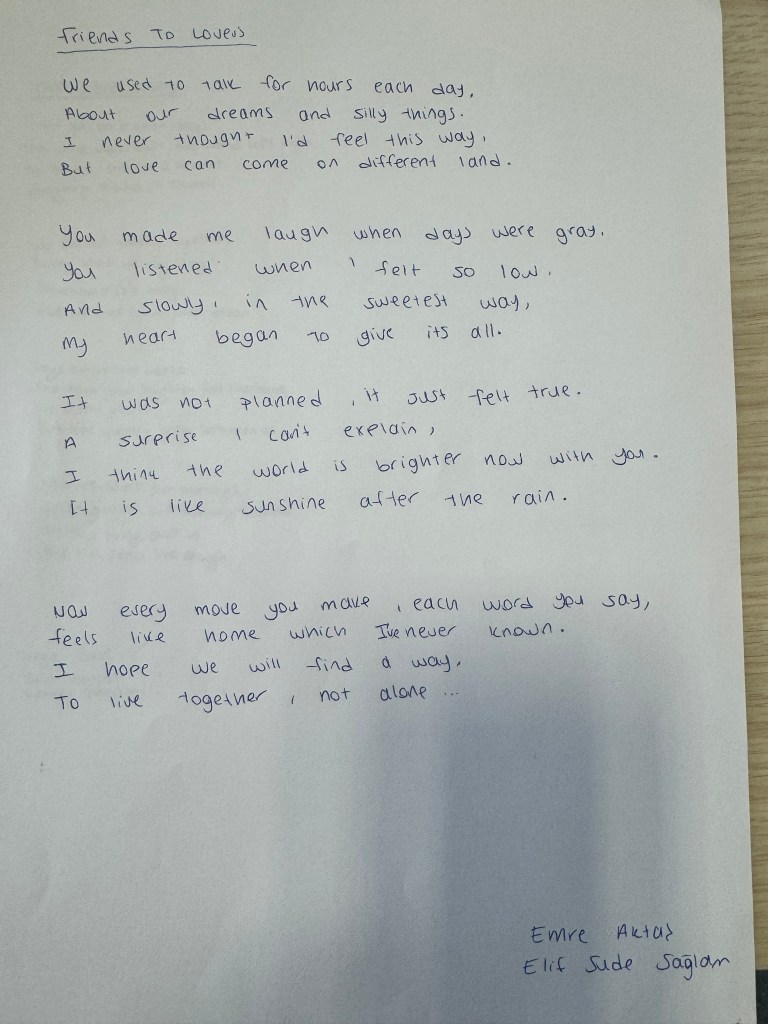 Friends To Lovers
We used to talk for hours each day,
About our dreams and silly things.
I never thought I'd feel this way,
But love can come on different land.
You made me laugh when days were gray,
You listened when I felt so low,
And slowly, in the sweetest way,
My heart began to give its all.
It was not planned, it just felt true.
A surprise I can't explain,
I think the world is brighter now with you.
It is like sunshine after the rain.
Now every move you make, each word you say,
feels like home which I've never known.
I hope we will find a way,
To live together, not alone...
Emre Aktaş
Elif Sude Sağlam